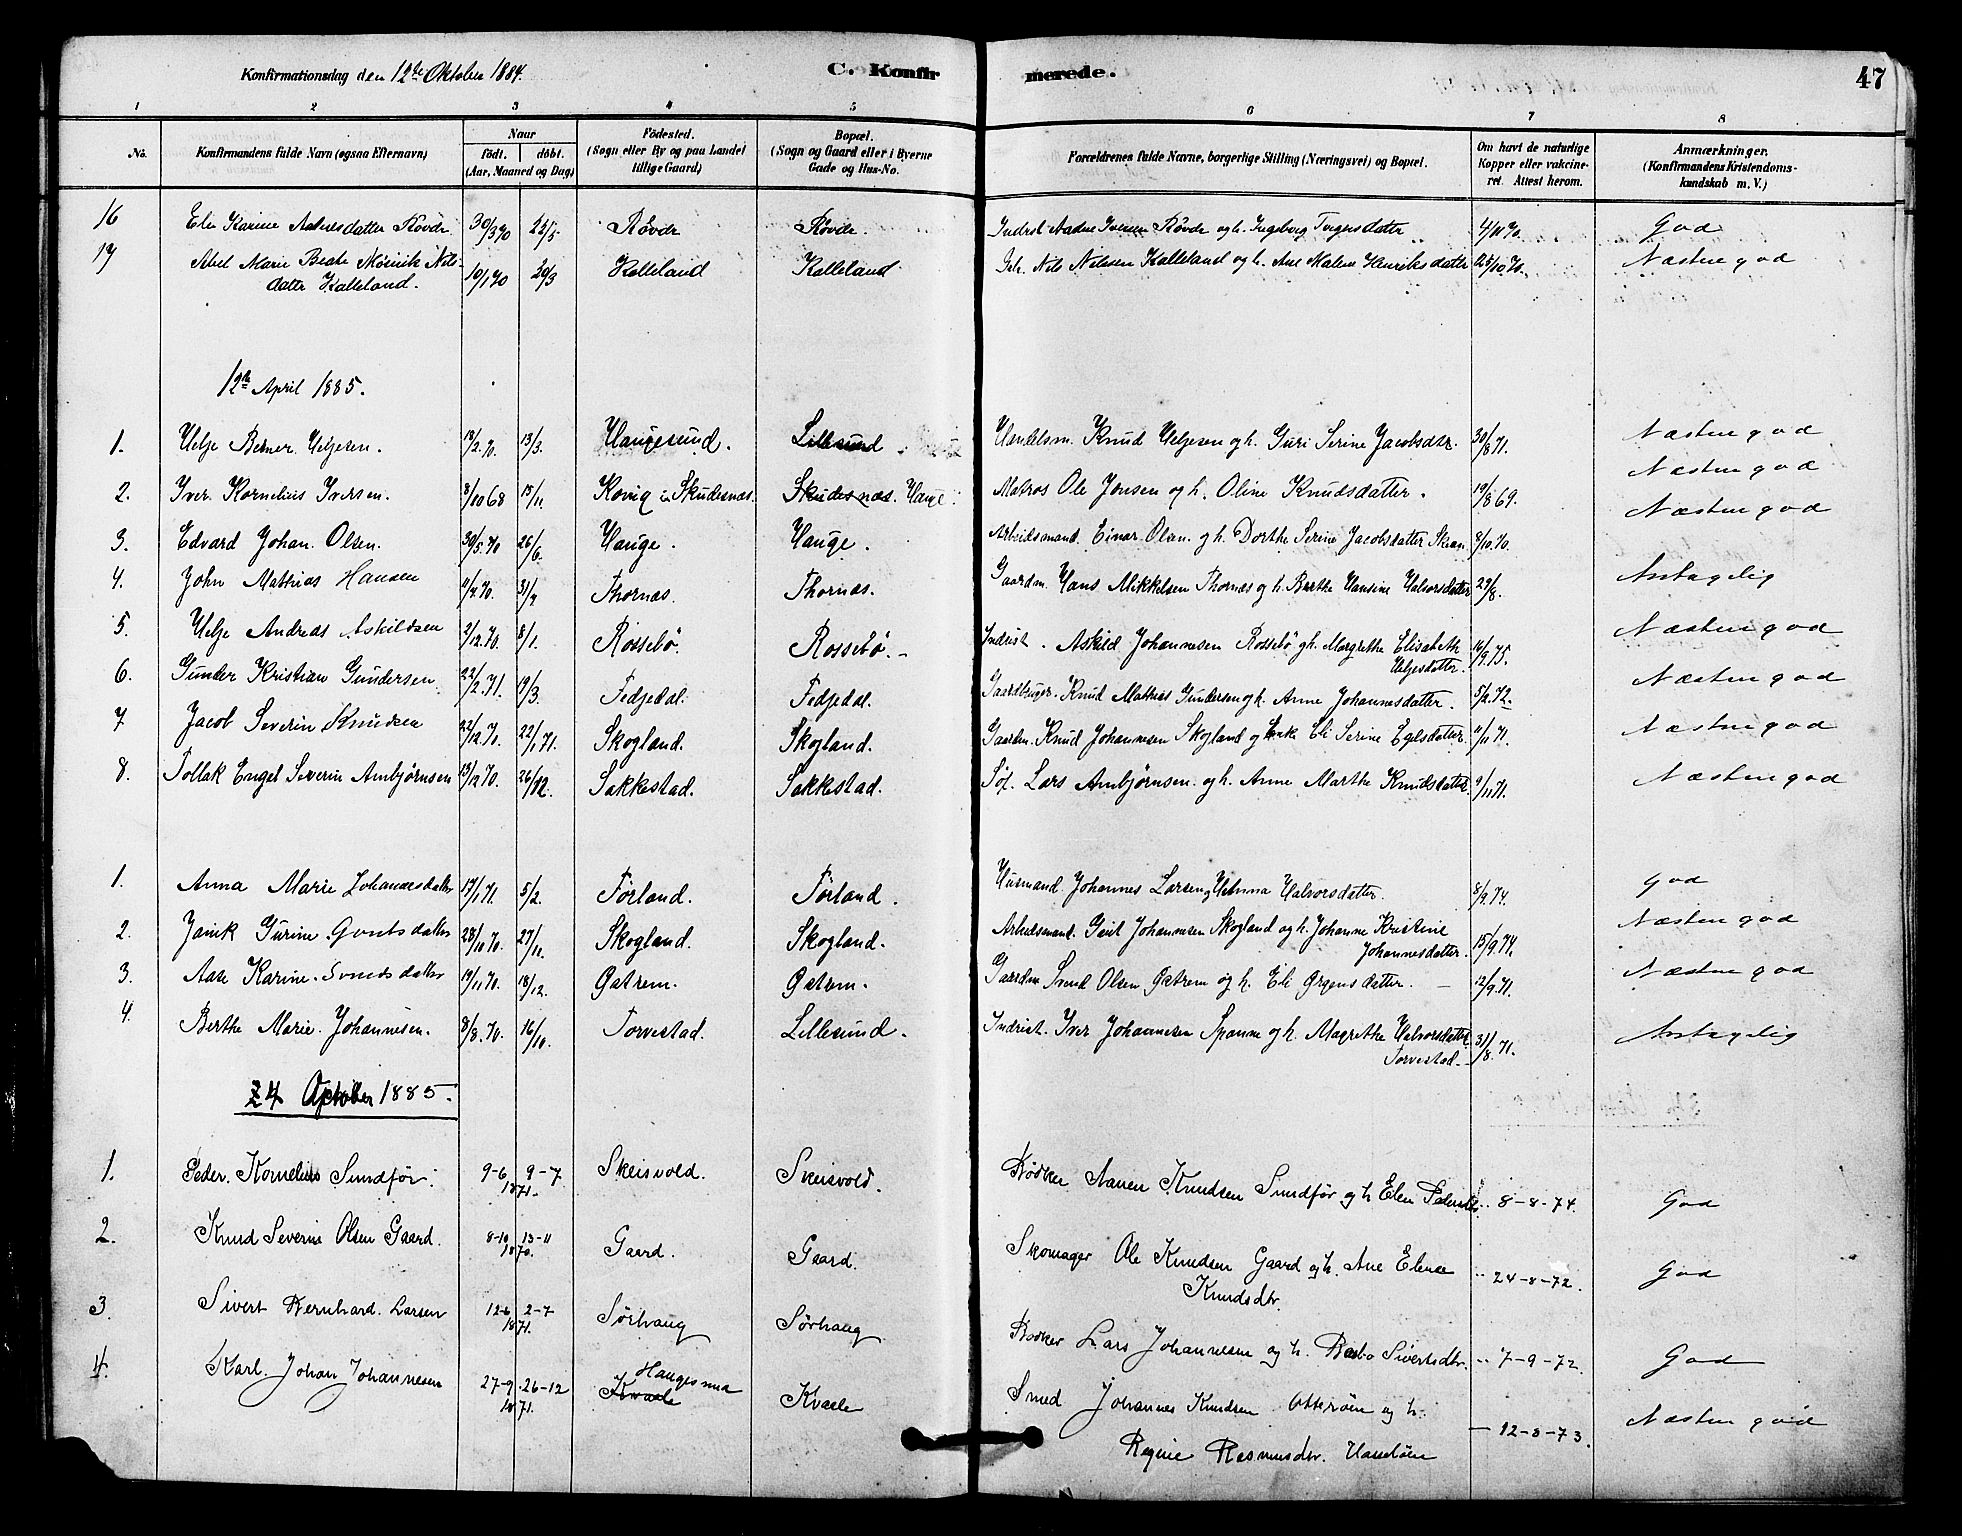 Konfirmationsdag den 12te Oktober 1884.
C. Konfirmerede.
47
1 2 3 4 5 6 7 8
No.
Konfirmandens fulde Navn (ogsaa Efternavn)
Naar
födt. döbt.
(Aar, Maaned og Dag)
Födested.
(Sogn eller By og paa Landet
tillige Gaard)
Bopæl.
(Sogn og Gaard eller i Byerne
Gade og Hus-No.
Forældrenes fulde Navne, borgerlige Stilling (Næringsvei) og Bopæl.
Om havt de naturlige
Kopper eller vakcine-
ret. Attest herom.
Anmærkninger.
(Konfirmandens Kristendoms-
kundskab m. V.)
16 Eli Karine Aadnesdatter Røvde 30/3 70 22/5 Røvde Røvde. Indrst Aadne Iversen Røvde og h. Ingeborg 4/11 70. God
17 Abel Marie Beate Nils- 10/1 70 20/3 Kalleland Kalleland Nils Nilssen Kalleland og h. Ane Malene Henriksdatter 25/10 70. Næsten god
datter Kalleland.
12te April 1885.
1. Helje Berner Heljesen. 13/2 70. 13/3. Haugesund. Lillesund Handelsm. Knud Heljesen og h. Guri Serine Jacobsdtr. 30/8 71. Næsten god
2. Iver Kornelius Iversen. 8/10 68 15/11. Kovig i Skudesnæs. Skudesnæs. Hauge. Matros Ole Jensen og h. Oline Knudsdatter. 19/8 69. Næsten god
3. Edvard Johan Olsen. 30/5 70 26/6. Hauge. Hauge. Arbeidsmand Einar Olsen og h. Dorthe Serine Jacobsdatter 8/10 70. Næsten god
4. John Mathias Hansen 11/7 70. 31/7 Thornæs. Thornæs. Gaardm. Hans Mikkelsen Thornæs og h. Berthe Hansine Halvorsdatter 29/8. Antagelig
5. Helje Andreas Askildsen 2/12 70. 8/1. Rossebö. Rossebö. Indrist. Askild Johannesen Rossebö og h. Margrethe Elisabeth 16/9 75. Næsten god
Heljesdatter.
6. Gunder Kristian Gundersen 22/2 71. 19/3. Fedjedal. Fedjedal. Gaardbruger. Knud Mathias Gundersen og h. Anne Johannesdatter. 5/2 72. Næsten god
7 Jacob Severin Knudsen 22/12 70. 22/1 71. Skogland. Skogland. Gaardm. Knud Johannesen Skogland og Enk Eli Serine Egelsdatter. 11/11 71. Næsten god
8. Tollak Engel Severin Ambjörnsen 13/12 70. 26/12. Sakkestad. Sakkestad. Söf. Lars Ambjörnsen og h. Anne Marthe Knudsdatter. 9/11 71. Næsten god
1. Anna Marie Johannesdatter 17/1 71. 5/2. Førland. Førland. Husmand. Johannes Larsen og Helmina Halvorsdatter. 8/9 74. god
2. Janik Gurine Gvutsdatter 28/10 70. 27/11. Skogland. Skogland. Arbeidsmand. Gvut Johannesen Skogland og h. Johanne Kristine 15/9 74. Næsten god
Johannesdatter.
3. Aase Karine Svendsdatter 19/11 70. 18/12. Østrem. Østrem. Gaardm Svend Olsen Østrem og h. Eli Ørgensdatter. 12/9 71. Næsten god
4. Berthe Marie Johannesen. 8/8 70. 16/10. Torvestad. Lillesund. Indrist. Iver Johannesen Spanne og h. Magrethe Halvorsdatter 31/8 71. Antagelig
Torvestad
24 October 1885.
1. Peder Kornelius Sundför. 9-6 9-7 1871. Skeisvold. Skeisvold. Bödker Aanen Knudsen Sundför og h Elen 8-8-74. God
2. Knud Severin Olsen Gaard. 8-10 13-11 1870. Gaard. Gaard. Skomager Ole Knudsen Gaard og h. Ane Elene 24-8-72. God
Knudsdtr.
3. Sivert Bernhard Larsen 12-6 2-7 1871. Sørhaug Sørhaug Bödker Lars Johannesen og h. Sivertsdtr. 7-9-72. God
4. Karl Johan Johannesen 27-9 26-12 1871. Haugesund Kvaale Kvaale Smed Johannes Knudsen Otteröen og h. 12-8-73. Næsten god
Regine Rasmusdtr. Hasselöen